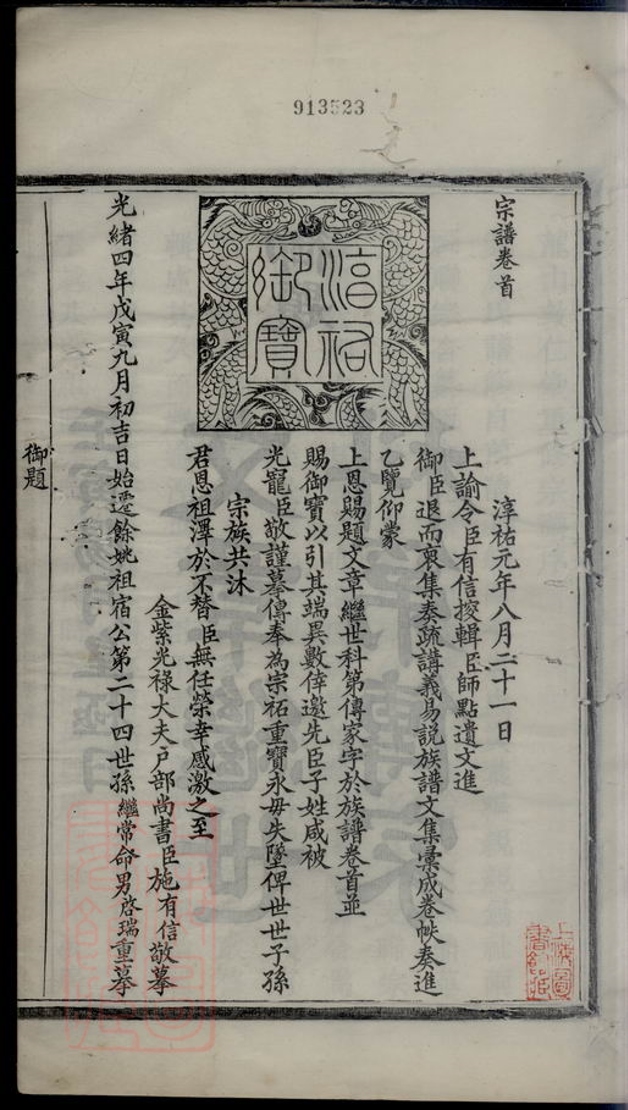 913523
宗譜卷首
淳祐
御寶
淳祐元年八月二十一日
上諭令臣有信搜輯臣師點遺文進
御臣退而裒集奏疏講義易説族譜文集彙成卷帙奏進
乙覽仰蒙
上恩賜題文章繼世科第傳家字於族譜卷首並
賜御寶以引其端異數倖邀先臣子姓咸被
光寵臣敬謹摹傳奉為宗祏重寶永毋失墜俾世世子孫
宗族共沐
君恩祖澤於不替臣無任榮幸感激之至
金紫光祿大夫戶部尚書臣施有信敬摹
光緒四年戊寅九月初吉日始遷餘姚祖宿公第二十四世孫繼常命男啓瑞重摹
御題
上海圖
書館藏